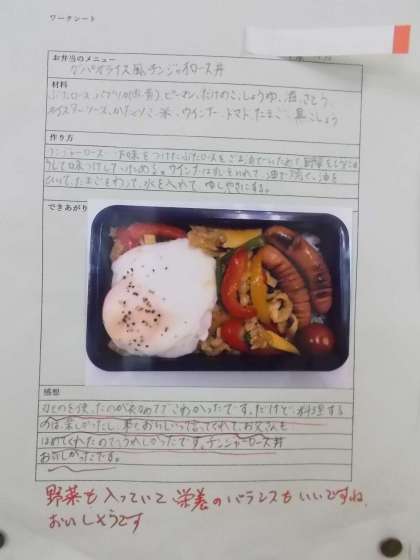 ワークシート
お弁当のメニュー
ガパオライス風チンジャオロース丼
材料
ぶたロース、パプリカ(赤、黄)、ピーマン、たけのこ、しょうゆ、酒、さとう、
オイスターソース、かたくりこ、米、ウインナー、トマト、たまご、黒こしょう
作り方
チンジャーロース 下味をつけたぶたロースを
味つけしていためる。ウインナーは
ひいて、たまごをわって、水を入れて、むしやきにする。
できあがり
感想
使ったのが初めてでこわかったです。だけど、料理する
のは、楽しかったし、おいしいって言ってくれて、お父さんも
ほめてくれたのでうれしかったです。チンジャーロース丼
おいしかったです。
野菜も入っていて栄養のバランスもいいですね。
おいしそうです